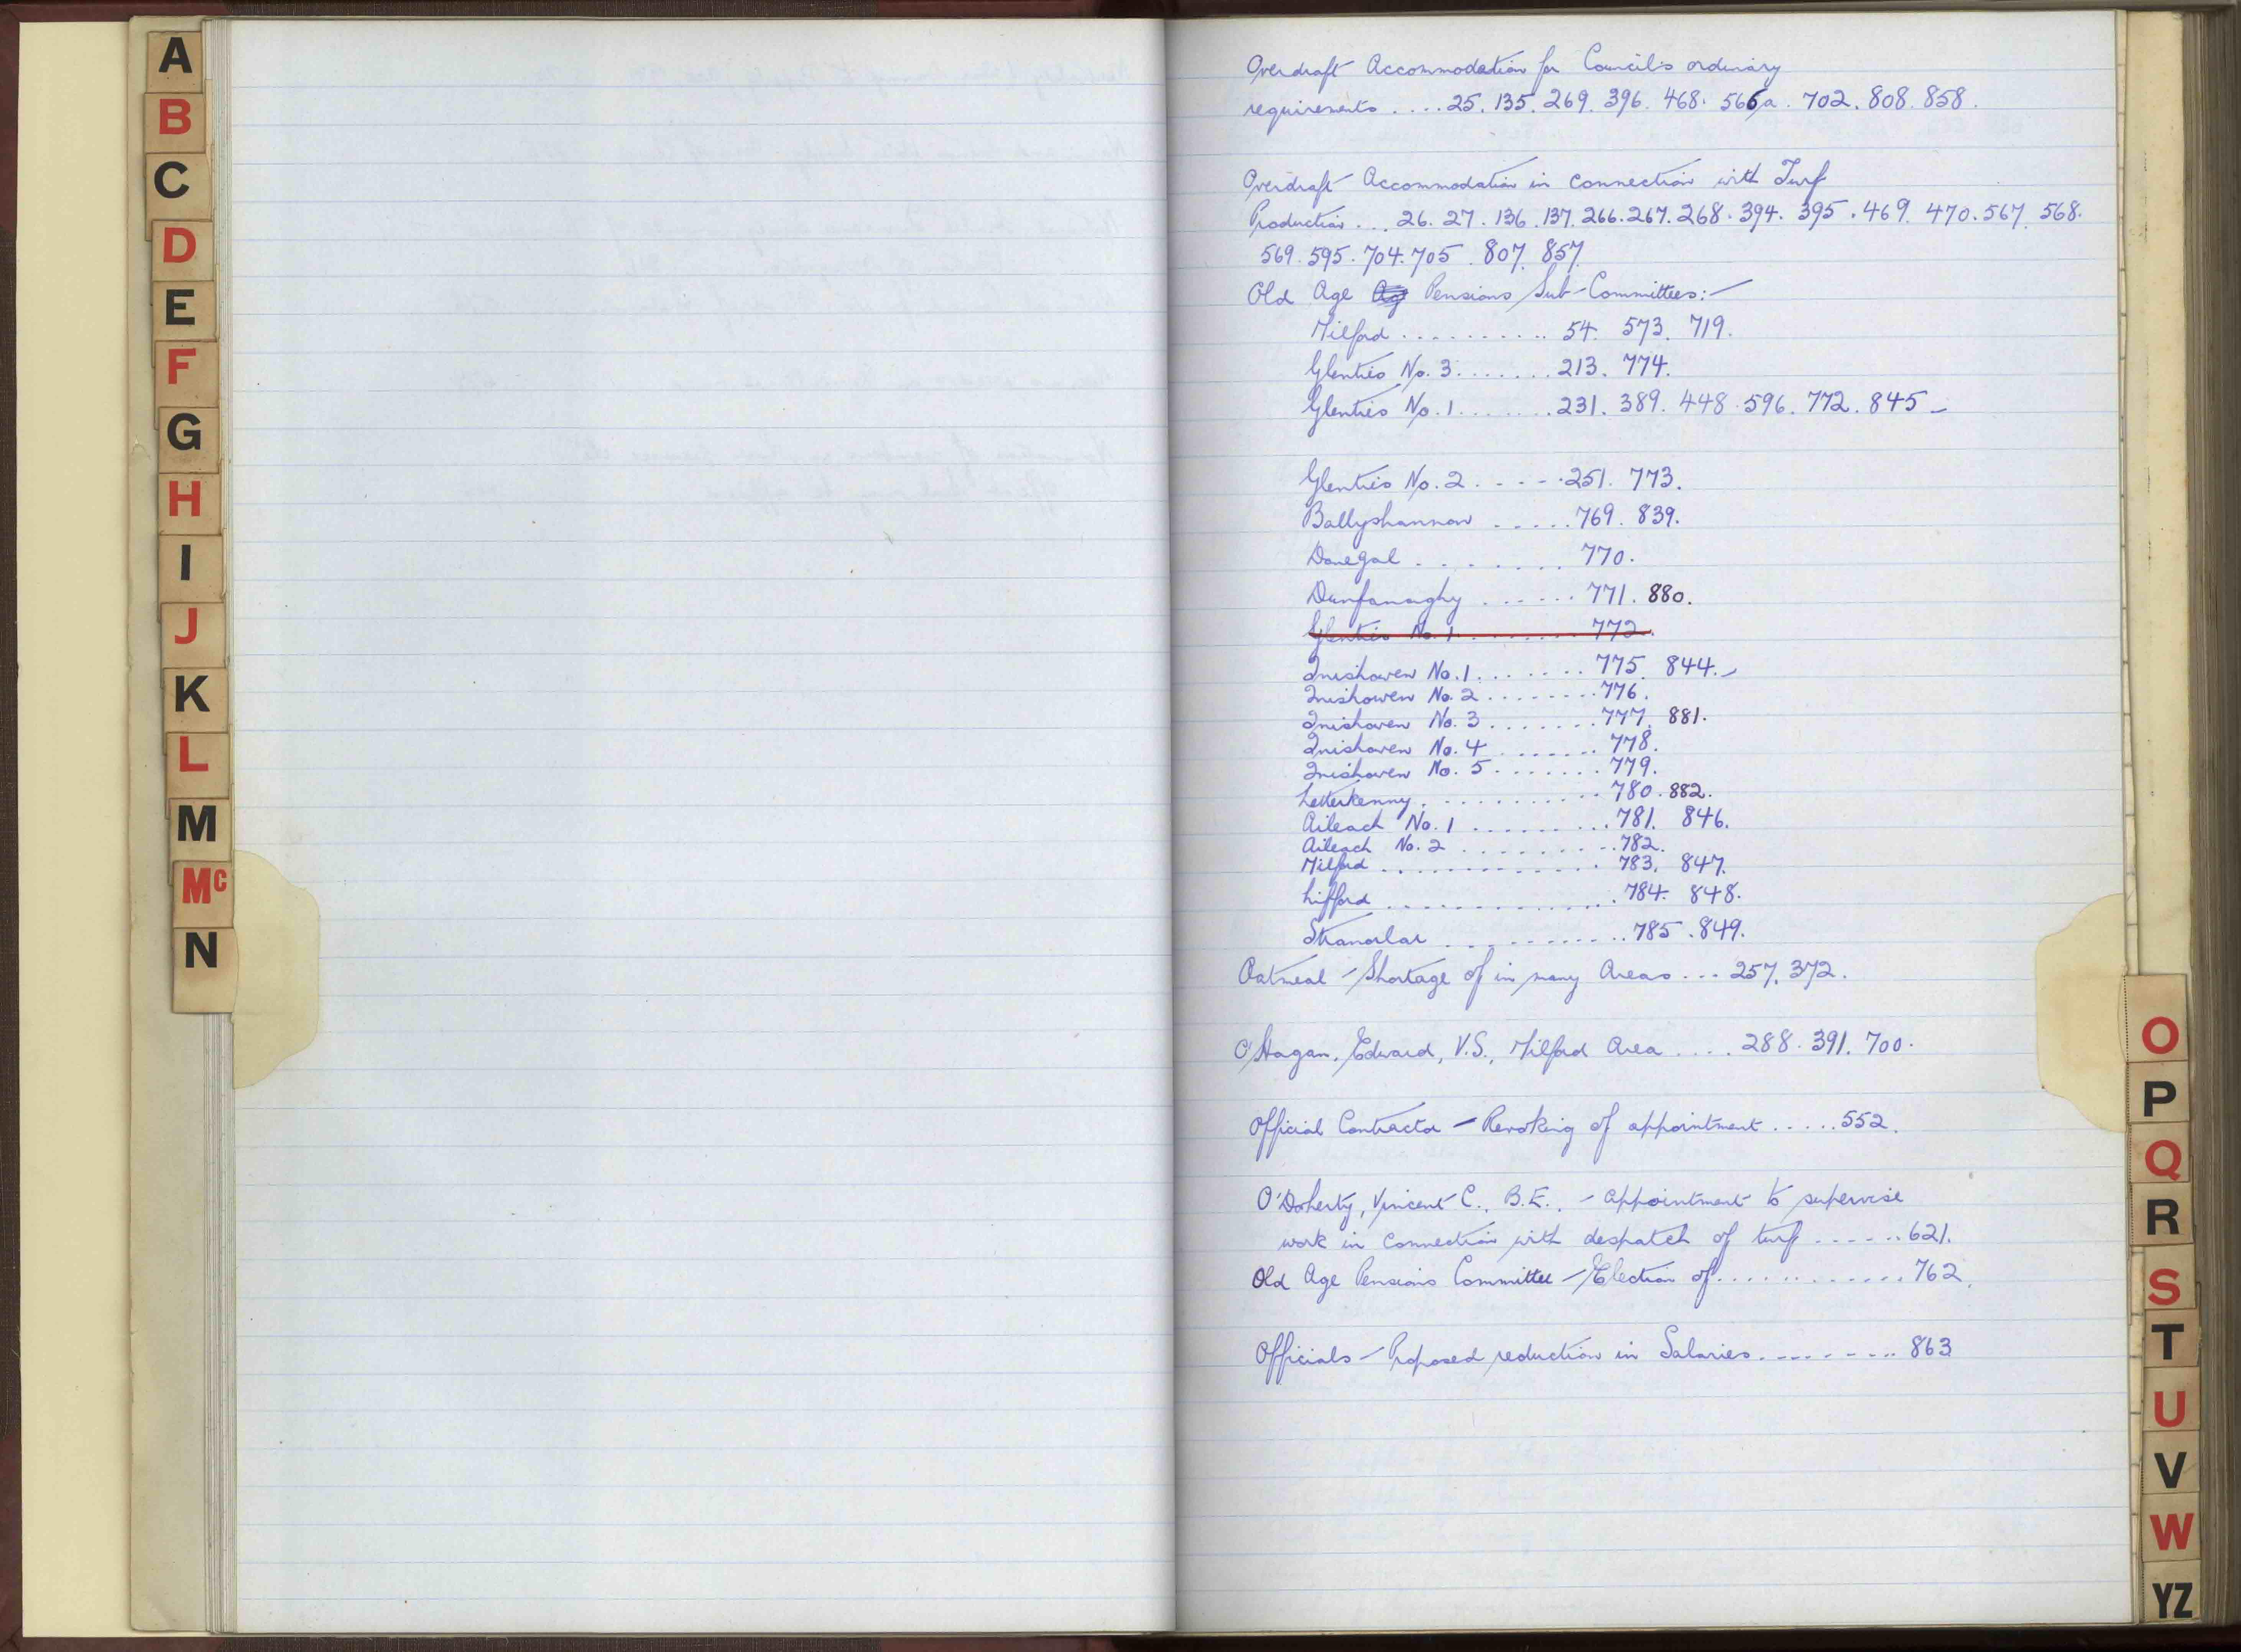 A
B
C
D
E
F
G
H
I
J
K
L
M
Mc
N
Overdraft Accommodation for Council's ordinary
requirements .... 25. 135. 269. 396. 468. 566a. 702. 808. 858.
Overdraft Accommodation in connection with Turf
Production ... 26. 27. 136. 137. 266. 267. 268. 394. 395. 469. 470. 567. 568.
569. 595. 704. 705. 807. 857.
Old Age Ag Pensions Sub-Committees:-
Milford .......... 54. 573. 719.
Glenties No. 3. ...... 213. 774.
Glenties No. 1. ...... 231. 389. 448. 596. 772. 845 -
Glenties No. 2. .... 251. 773.
Ballyshannon ..... 769. 839.
Donegal ........ 770.
Dunfanaghy ...... 771. 880.
Glenties No. 1. ....... 772.
Inishowen No. 1. ...... 775. 844. -
Inishowen No. 2 ........ 776.
Inishowen No. 3 ....... 777. 881.
Inishowen No. 4 ....... 778.
Inishowen No. 5. ...... 779.
Letterkenny. .......... 780. 882.
Aileach No. 1 ......... 781. 846.
Aileach No. 2 ......... 782.
Milford ............. 783. 847.
Lifford .............. 784. 848.
Stranorlar .......... 785. 849.
Oatmeal - Shortage of in many Areas ... 257. 372.
O'Hagan, Edward, V.S., Milford Area .... 288. 391. 700.
Official Contractor - Revoking of appointment ..... 552.
O'Doherty, Vincent C., B.E., - Appointment to supervise
work in connection with despatch of turf ...... 621.
Old Age Pensions Committee - Election of ............. 762.
Officials - Proposed reduction in Salaries. ........ 863
O
P
Q
R
S
T
U
V
W
YZ